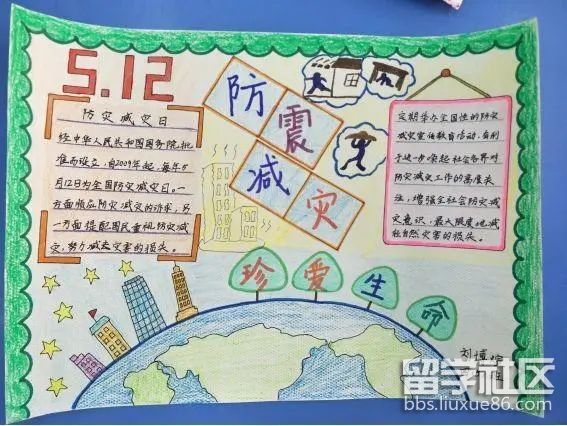 5.12
防灾减灾日
经中华人民共和国国务院批
准而设立,自2009年起,每年5
月12日为全国防灾减灾日。一
方面顺应防灾减灾的诉求,另
一方面提醒国民重视防灾减
灾,努力减少灾害的损失。
防震
减灾
定期举办全国性的防灾
减灾宣传教育活动,有利
于进一步唤起社会各界对
防灾减灾工作的高度关
注,增强全社会防灾减
灾意识,最大限度地减
轻自然灾害的损失。
珍爱生命
刘博
留学社区
bbs.liuxue86.com